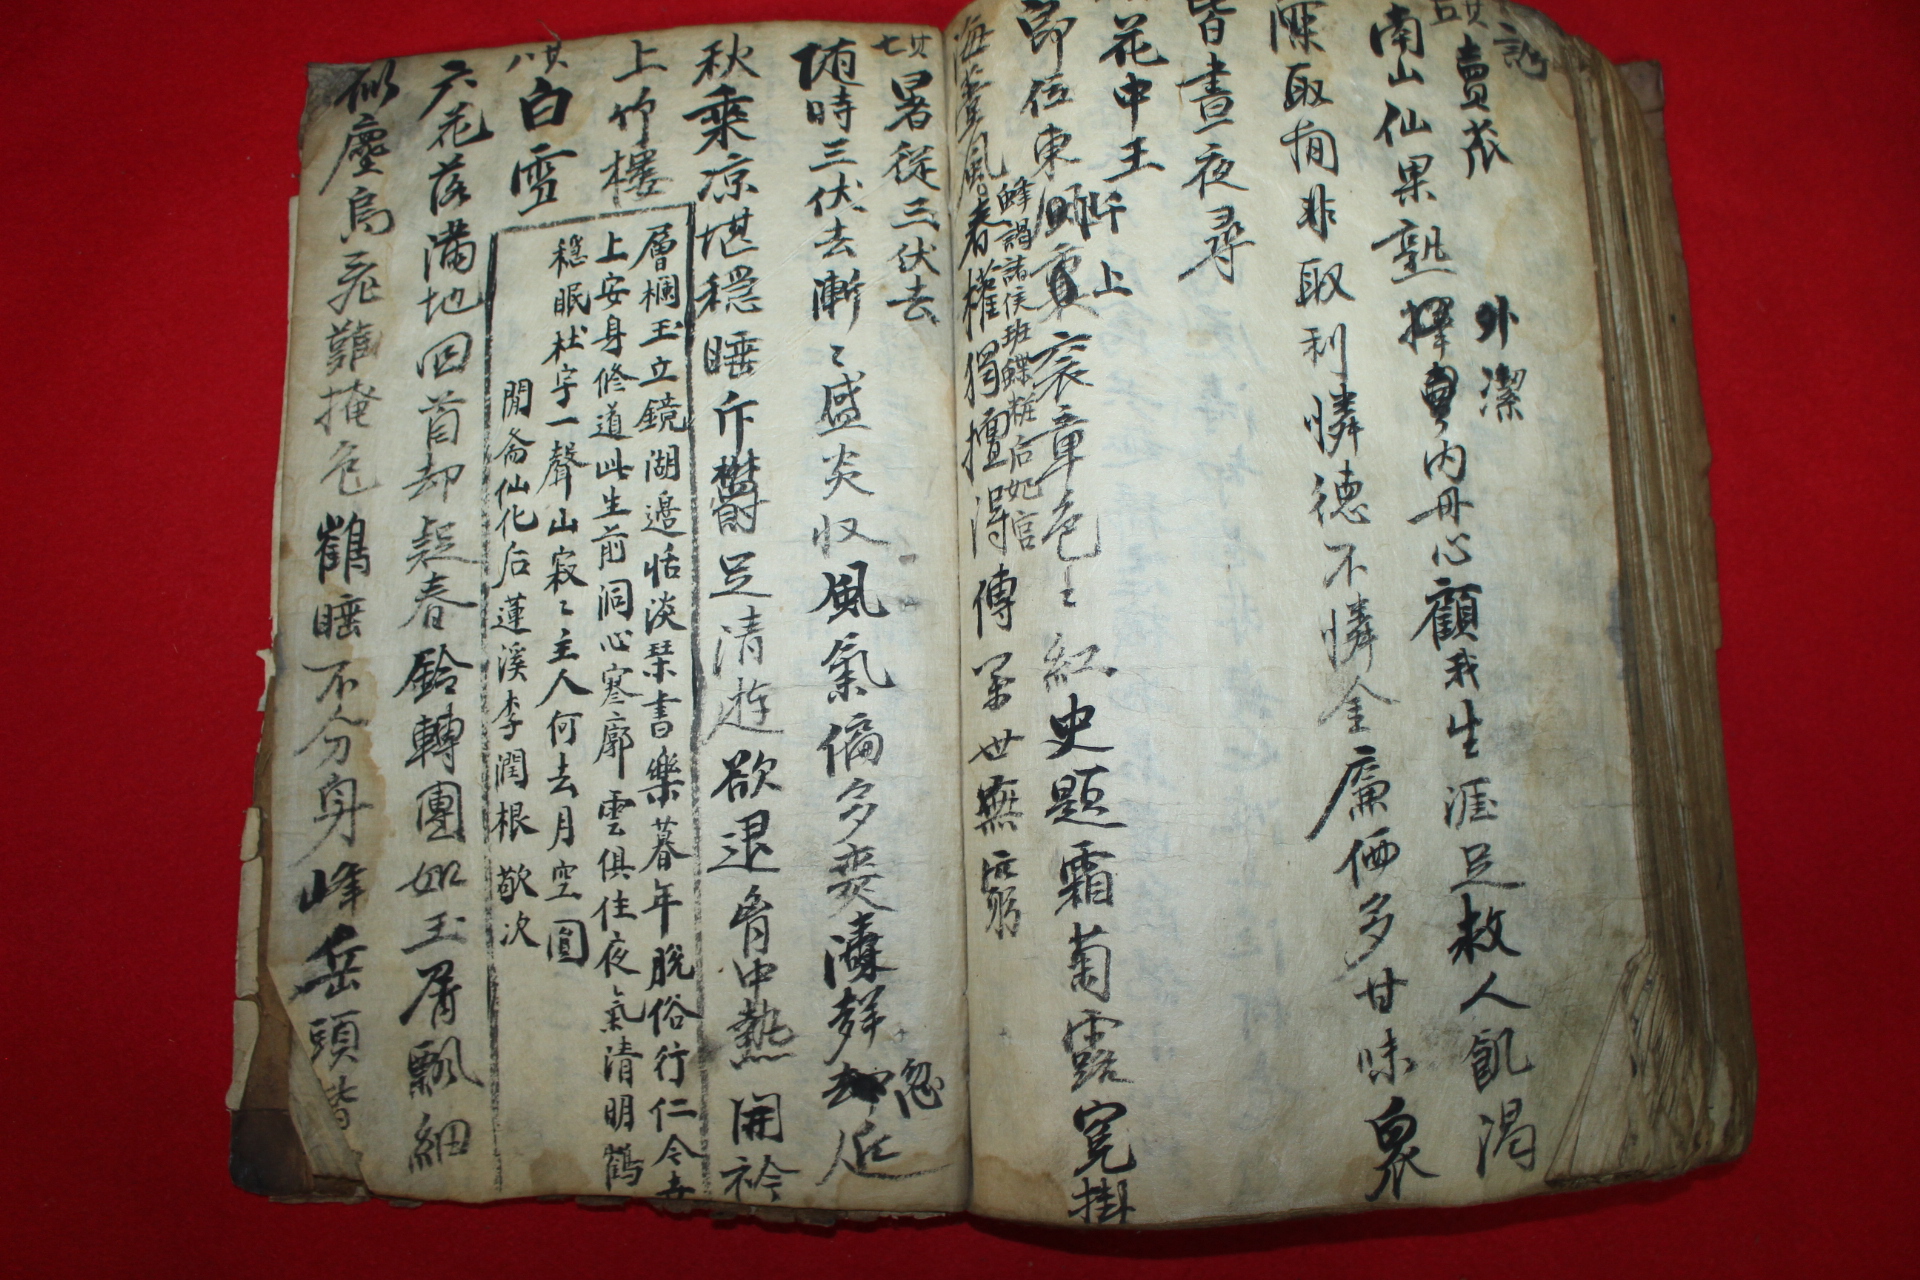 訟
其五 賣茶 外潔
南山仙果熟擇內丹心顧我生涯足救人飢渴
深取狥非取利憐德不憐金廉価多甘味衆
皆晝夜尋
花中王 上
節位東袞章色〻紅史題霜菊露寛掛
蜂謁諸侯班蝶粧后妃宮
海臺風春權獨擅得傳 世無窮
其七 暑從三伏去
随時三伏去漸〻盛炎収風氣偏多爽濤群 忽近
秋乘凉堪穩睡斥欝足清遊欲退胷中熱開衿
上竹樓
層欄玉立鏡湖邉恬淡琹書樂暮年脫俗行仁今
上安身修道此生前洞心寥廓雲俱住夜氣清明鶴
穩眠杜宇一聲山寂〻主人何去月空圓
閒斋仙化后蓮溪李潤根敬次
其八 白雪
六花落滿地回首却疑春鈴轉團如玉屑飄細
似塵烏飛難掩色鶴睡不分身峰岳頭